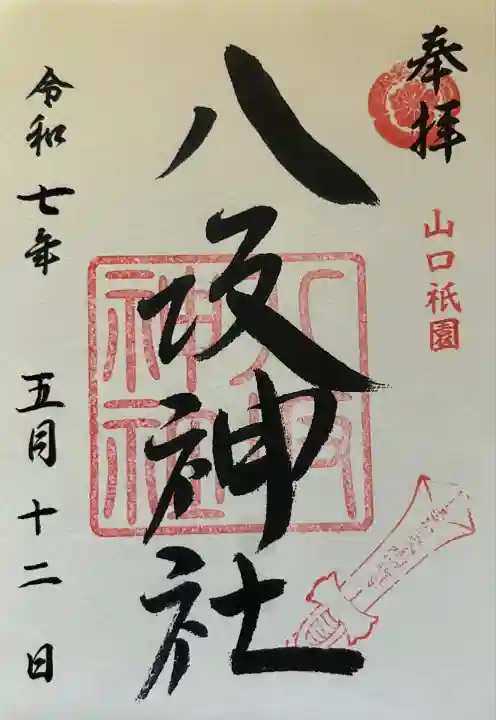 奉拝
山口祇園
八坂神社
八坂神社
令和七年 五月十二日